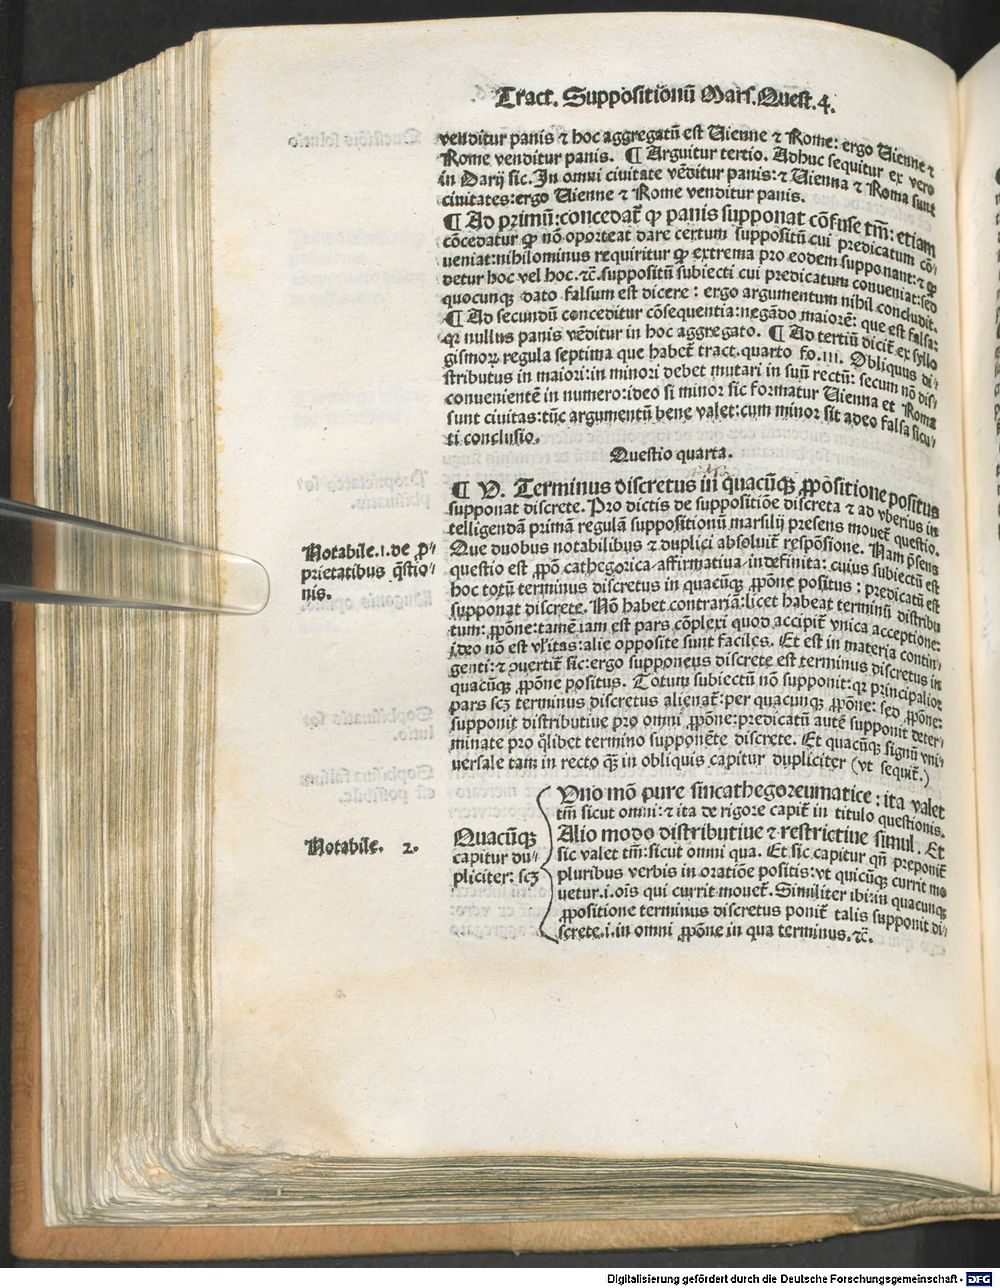 Tract. Suppositionū Mars. Quest. 4.
venditur panis ⁊ hoc aggregatū est Uienne ⁊ Rome: ergo Uienne ⁊
Rome venditur panis. ¶ Arguitur tertio. Adhuc sequitur ex vero
in Darij sic. In omni ciuitate vēditur panis: ⁊ Uienna ⁊ Roma sunt
ciuitates: ergo Uienne ⁊ Rome venditur panis.
¶ Ad primū: concedat̄ ꝙ panis supponat cōfuse tm̄: etiam
cōcedatur ꝙ nō oporteat dare certum suppositū cui predicatum cō⸗
ueniat: nihilominus requiritur ꝙ extrema pro eodem supponant: ⁊ ꝙ
detur hoc vel hoc. ⁊c̄. suppositū subiecti cui predicatum conueniat: sed
quocunqꝫ dato falsum est dicere: ergo argumentum nihil concludit.
¶ Ad secundū conceditur cōsequentia: negādo maiorē: que est falsa:
qꝛ nullus panis vēditur in hoc aggregato. ¶ Ad tertiū dicit̄ ex syllo
gismoꝝ regula septima que habet̄ tract. quarto fo. iii. Obliquus di⸗
stributus in maiori: in minori debet mutari in suū rectū: secum nō dis⸗
conuenientē in numero: ideo si minor sic formatur Uienna et Roma
sunt ciuitas: tūc argumentū bene valet: cum minor sit adeo falsa sicu⸗
ti conclusio.
Questio quarta.
¶ V. Terminus discretus in quacūqꝫ ꝓpōsitione positus
supponat discrete. Pro dictis de suppositiōe discreta ⁊ ad vberius in
telligendā primā regulā suppositionū marsilij presens mouet̄ questio.
Que duobus notabilibus ⁊ duplici absoluit̄ respōsione. Nam p̄sens
questio est ꝓpō cathegorica affirmatiua indefinita: cuius subiectū est
hoc totū terminus discretus in quacūqꝫ ꝓpōne positus: predicatū est
supponat discrete. Nō habet contrariā: licet habeat terminū distribu
tum: ꝓpōne: tamē iam est pars cōplexi quod accipit̄ vnica acceptione:
ideo nō est vl̄itas: alie opposite sunt faciles. Et est in materia contin⸗
genti: ⁊ ꝯuertit̄ sic: ergo supponens discrete est terminus discretus in
quacūqꝫ ꝓpōne positus. Totum subiectū nō supponit: qꝛ principalior
pars scꝫ terminus discretus alienat̄: per quacunqꝫ ꝓpōne: sed ꝓpōne:
supponit distributiue pro omni ꝓpōne: predicatū autē supponit deter⸗
minate pro qͦlibet termino supponēte discrete. Et quacūqꝫ signū vni⸗
uersale tam in recto qꝫ in obliquis capitur dupliciter (vt sequit̄.)
Notabile. 1. de ꝓ⸗
prietatibus q̄stio⸗
nis.
Notabile. 2.
Quacūqꝫ
capitur du⸗
pliciter: scꝫ
Uno mō pure sincathegoreumatice: ita valet
tm̄ sicut omni: ⁊ ita de rigore capit̄ in titulo questionis.
Alio modo distributiue ⁊ restrictiue simul. Et
sic valet tm̄: sicut omni qua. Et sic capitur qn̄ preponit̄
pluribus verbis in oratiōe positis: vt quicūqꝫ currit mo
uetur. i. oīs qui currit mouet̄. Similiter ibi: in quacunqꝫ
ꝓpositione terminus discretus ponit̄ talis supponit di⸗
screte. i. in omni ꝓpōne in qua terminus. ⁊c̄.
Digitalisierung gefördert durch die Deutsche Forschungsgemeinschaft - DFG